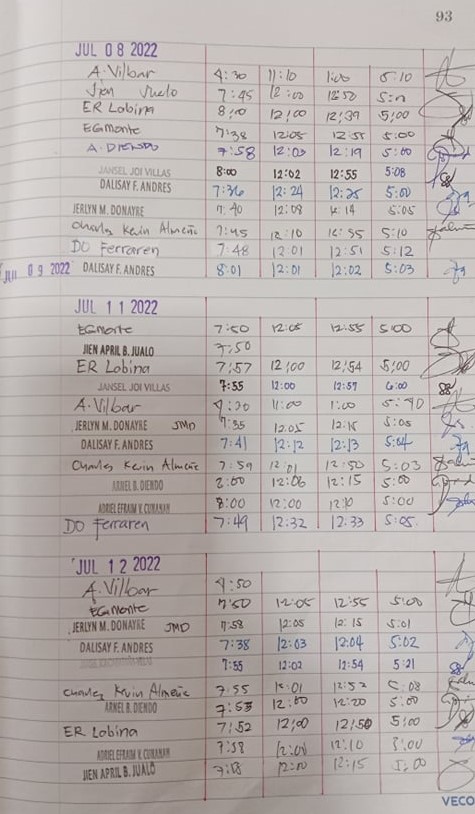 93
JUL 08 2022
A. Vilbar 4:30 11:10 1:00 5:10
Jien Jualo 7:45 12:00 12:50
ER Lobina 8:00 12:00 12:39 5:00
EGmonte 7:38 12:05 12:55 5:00
A. DIENDO 7:58 12:03 12:19 5:00
JANSEL JOI VILLAS 8:00 12:02 12:55 5:08
DALISAY F. ANDRES 7:36 12:24 12:25 5:00
JERLYN M. DONAYRE 7:40 12:08 12:14 5:05
Charles Kevin Almeñe 7:45 12:10 12:35 5:10
DO Ferraren 7:48 12:01 12:51 5:12
JUL 09 2022 DALISAY F. ANDRES 8:01 12:01 12:02 5:03
JUL 11 2022
EGmonte 7:50 12:05 12:55 5:00
JIEN APRIL B. JUALO 7:50
ER Lobina 7:57 12:00 12:54 5:00
JANSEL JOI VILLAS 7:55 12:00 12:57 6:00
A. Vilbar 4:30 11:00 1:00 5:40
JERLYN M. DONAYRE JMD 7:35 12:05 12:15 5:05
DALISAY F. ANDRES 7:41 12:12 12:13 5:04
Charles Kevin Almeñe 7:59 12:01 12:50 5:03
ARNEL B. DIENDO 8:00 12:06 12:15 5:00
ADRIEL EFRAIM V. CUNANAN 8:00 12:00 12:10 5:00
DO Ferraren 7:49 12:32 12:33 5:05
JUL 12 2022
A. Vilbar 4:50
EGmonte 7:50 12:05 12:55 5:00
JERLYN M. DONAYRE JMD 7:58 12:05 12:15 5:01
DALISAY F. ANDRES 7:38 12:03 12:04 5:02
7:55 12:02 12:54 5:21
Charles Kevin Almeñe 7:55 12:01 12:52 5:08
ARNEL B. DIENDO 7:53 12:00 12:20 5:00
ER Lobina 7:52 12:00 12:50 5:00
ADRIEL EFRAIM V. CUNANAN 7:58 12:00 12:10 5:00
JIEN APRIL B. JUALO 7:58 12:00 12:15 5:00
VECO